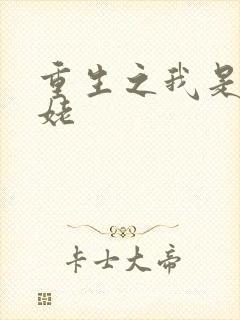 重生之我是
姥
卡士大帝